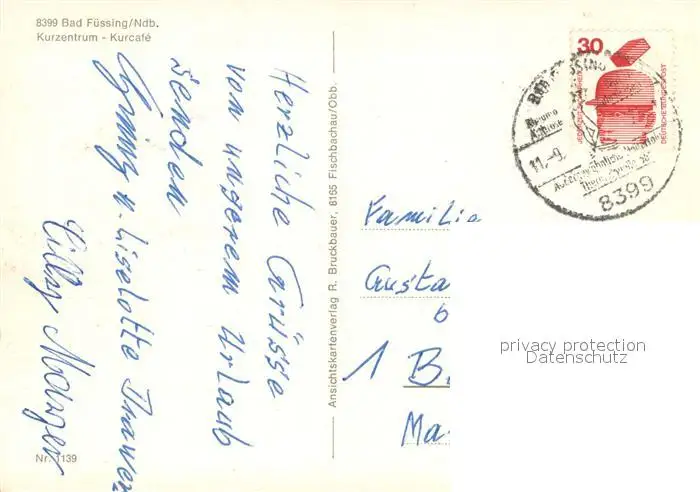 8399 Bad Füssing/Ndb.
Kurzentrum - Kurcafé
Herzliche Grüsse
von unserem Urlaub
senden
u. Liselotte
Nr. 1139
Ansichtskartenverlag R. Bruckbauer, 8165 Fischbachau/Obb.
30
JEDERZEIT SICHERHEIT
DEUTSCHE BUNDESPOST
BAD FÜSSING
11.-9.
8399
Familie
Gusta
6
1 B.
Ma
privacy protection
Datenschutz